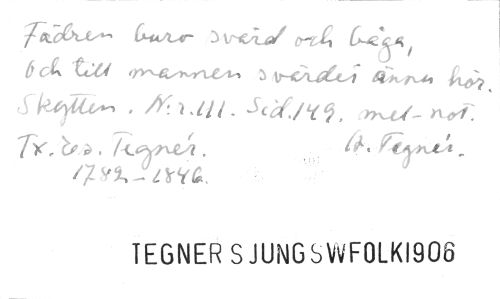 Fädren buro svärd och båga,
och till mannen svärdet ännu hör.
Skytten. N:r.III. Sid.149. mel-not.
Tx. Es. Tegnér. A. Tegnér.
1782-1846.
TEGNER S JUNG S W FOLK 1906